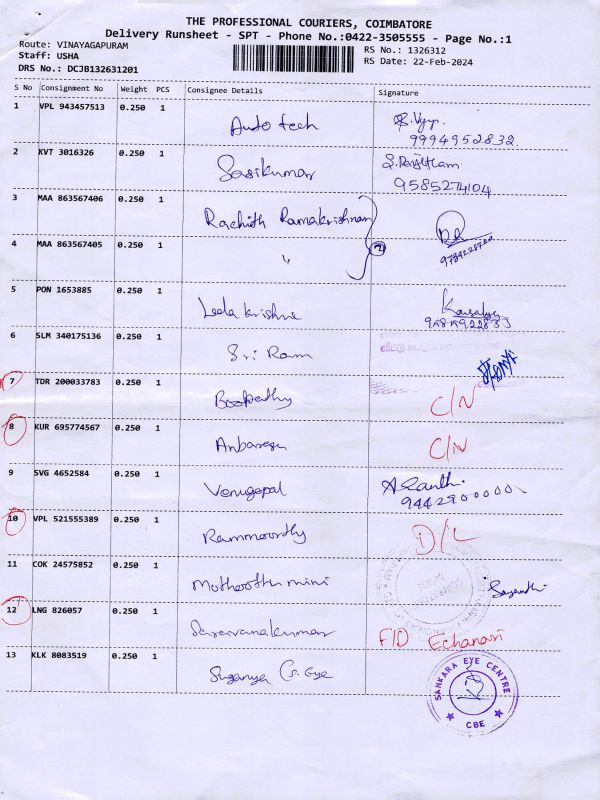 THE PROFESSIONAL COURIERS, COIMBATORE
Delivery Runsheet - SPT - Phone No.:0422-3505555 - Page No.:1
Route: VINAYAGAPURAM
Staff: USHA
DRS No.: DCJB132631201
RS No.: 1326312
RS Date: 22-Feb-2024
S No Consignment No Weight PCS Consignee Details Signature
1 VPL 943457513 0.250 1 Auto tech
9994952832
2 KVT 3016326 0.250 1 Sasikumar
9585274104
3 MAA 863567406 0.250 1 Rachith Ramakrishnan
4 MAA 863567405 0.250 1 "
2
5 PON 1653885 0.250 1 Leela krishna
6 SLM 340175136 0.250 1 Sri Ram
வீட்டு
7 TDR 200033783 0.250 1 Boopathy C/N
8 KUR 695774567 0.250 1 Anbarasu C/N
9 SVG 4652584 0.250 1 Venugopal
10 VPL 521555389 0.250 1 Rammoorthy D/L
11 COK 24575852 0.250 1 Muthoottu mini
12 LNG 826057 0.250 1 Saravanakumar FID Echanari
13 KLK 8083519 0.250 1 Suganya
SANKARA EYE CENTRE
CBE